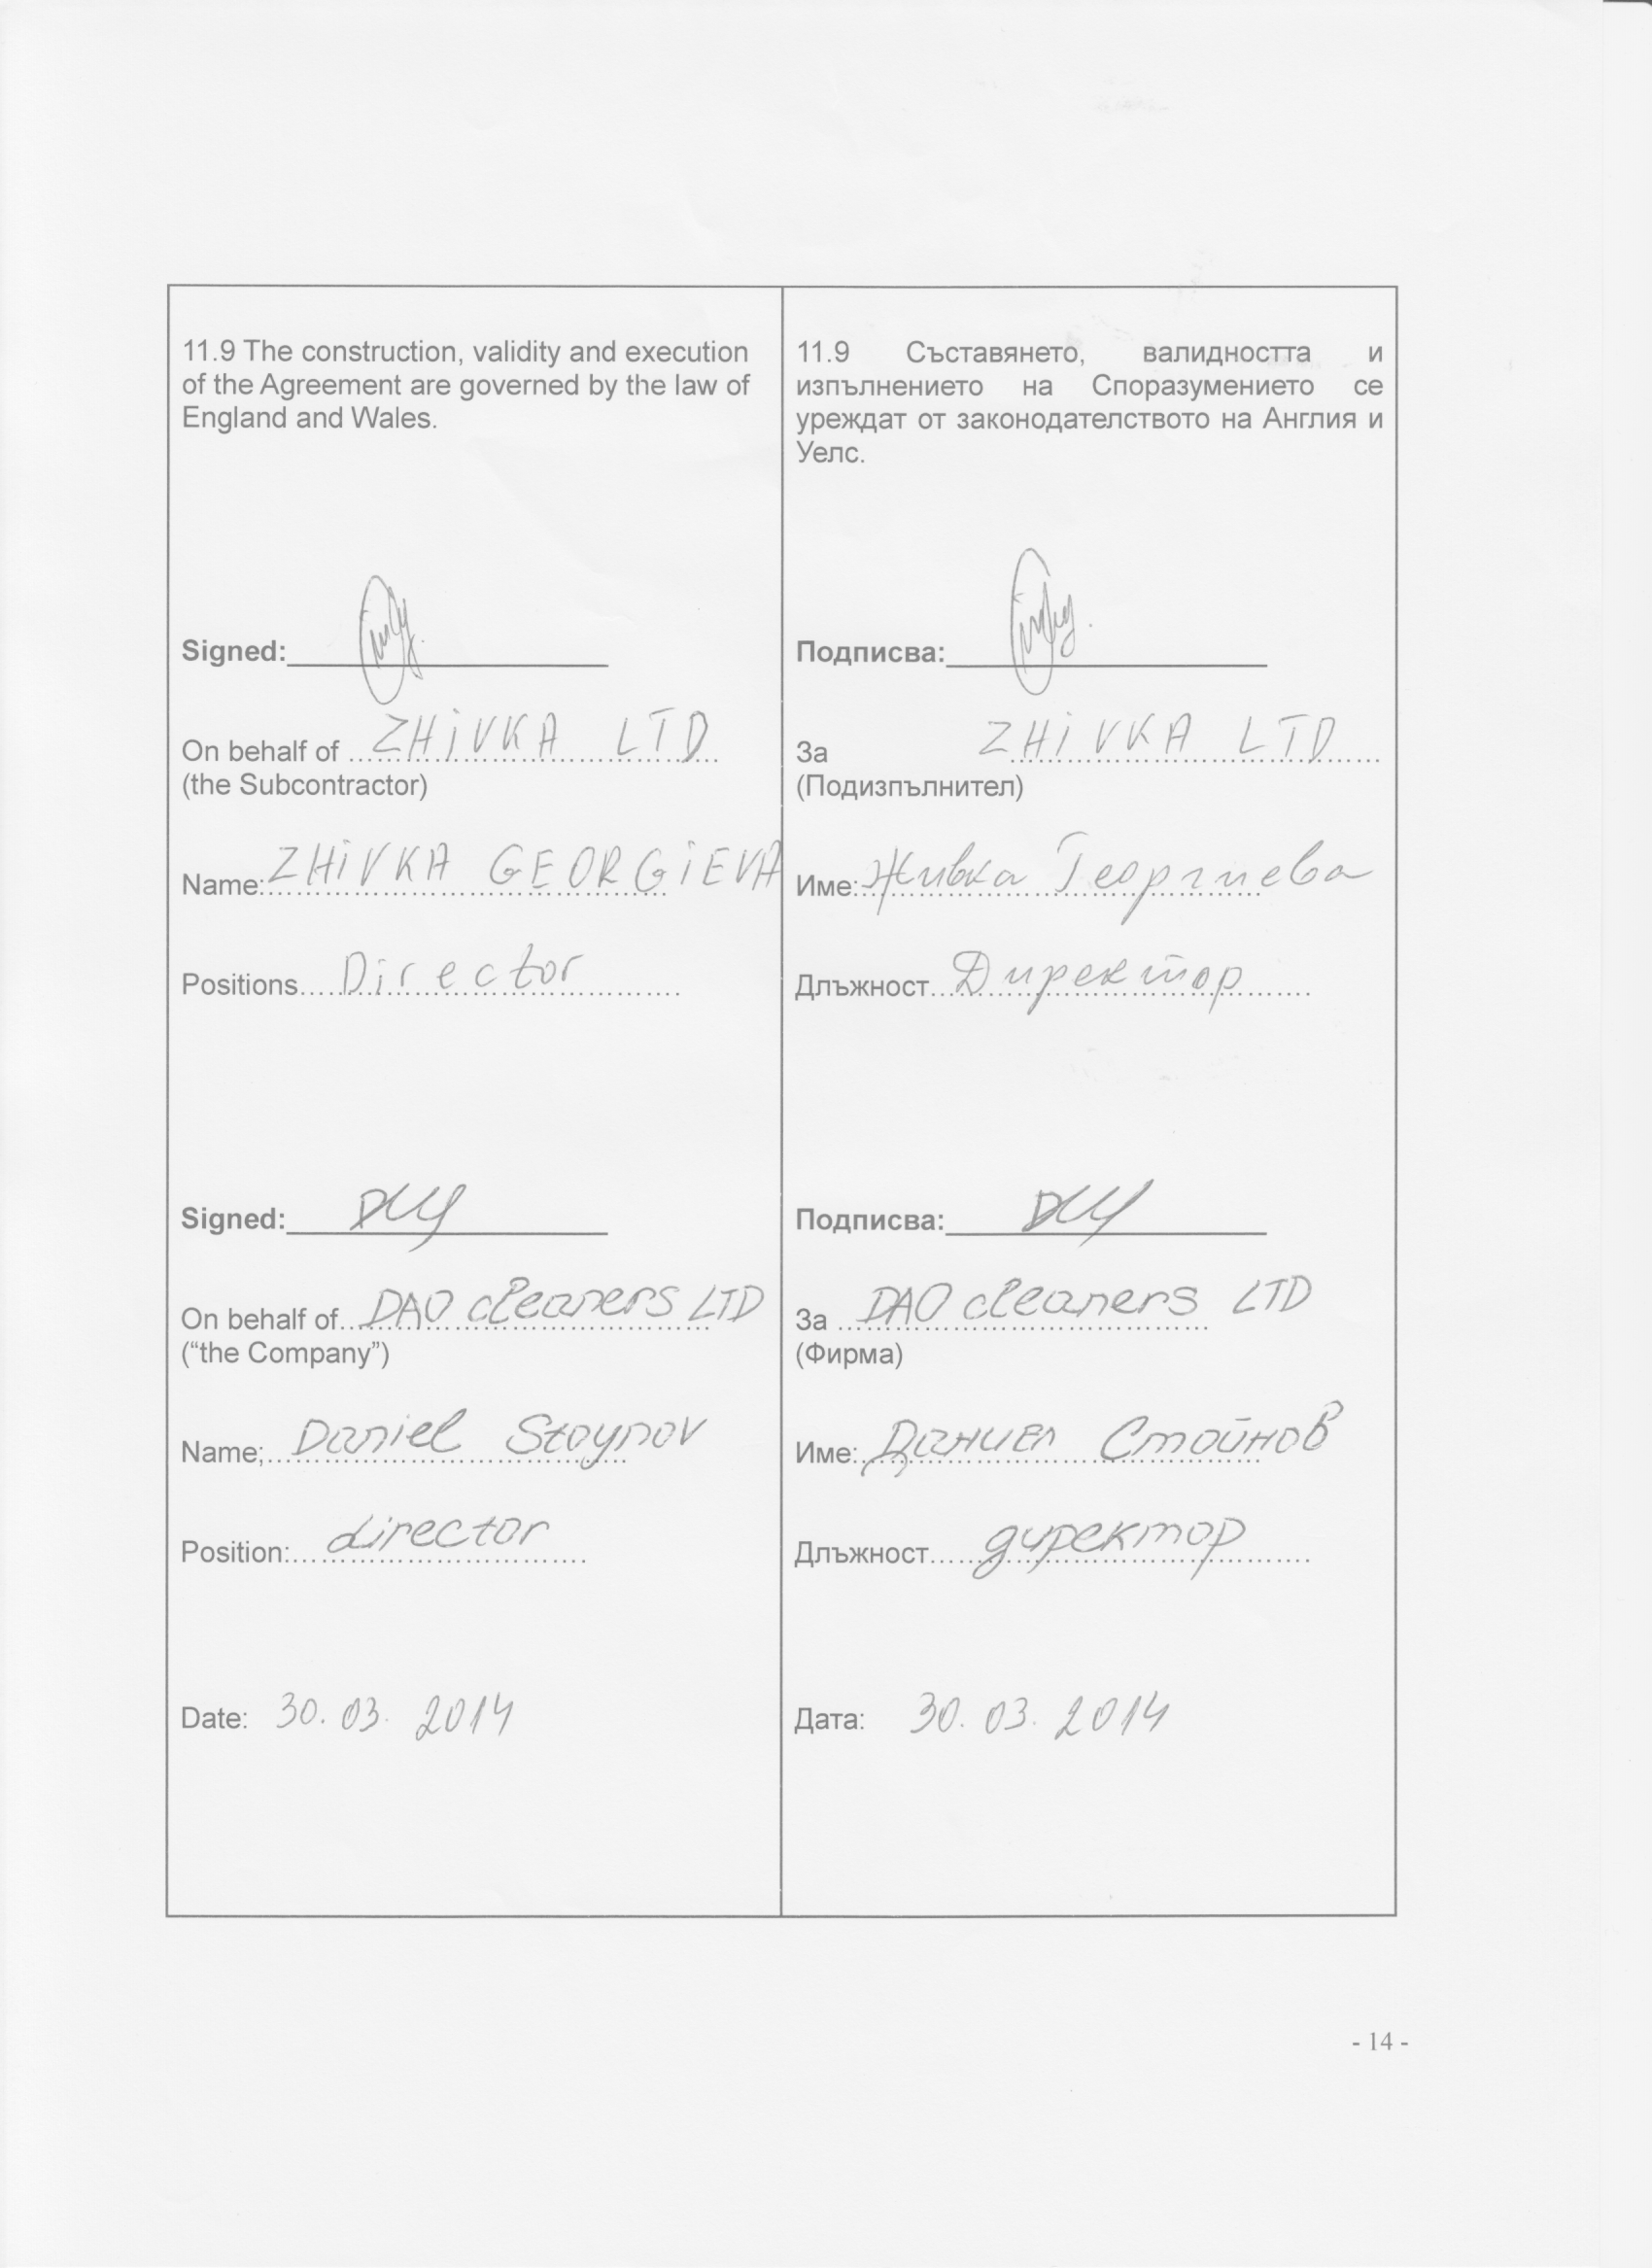 11.9 The construction, validity and execution
of the Agreement are governed by the law of
England and Wales.
Signed:
On behalf of ZHiVKA LTD
(the Subcontractor)
Name: ZHiVKA GEORGiEVA
Positions Director
Signed:
On behalf of DAO cleaners LTD
(“the Company”)
Name; Daniel Stoynov
Position: director
Date: 30. 03. 2014
11.9 Съставянето, валидността и
изпълнението на Споразумението се
уреждат от законодателството на Англия и
Уелс.
Подписва:
За ZHiVKA LTD
(Подизпълнител)
Име: Живка Георгиева
Длъжност Директор
Подписва:
За DAO cleaners LTD
(Фирма)
Име: Даниел Стойнов
Длъжност директор
Дата: 30. 03. 2014
- 14 -